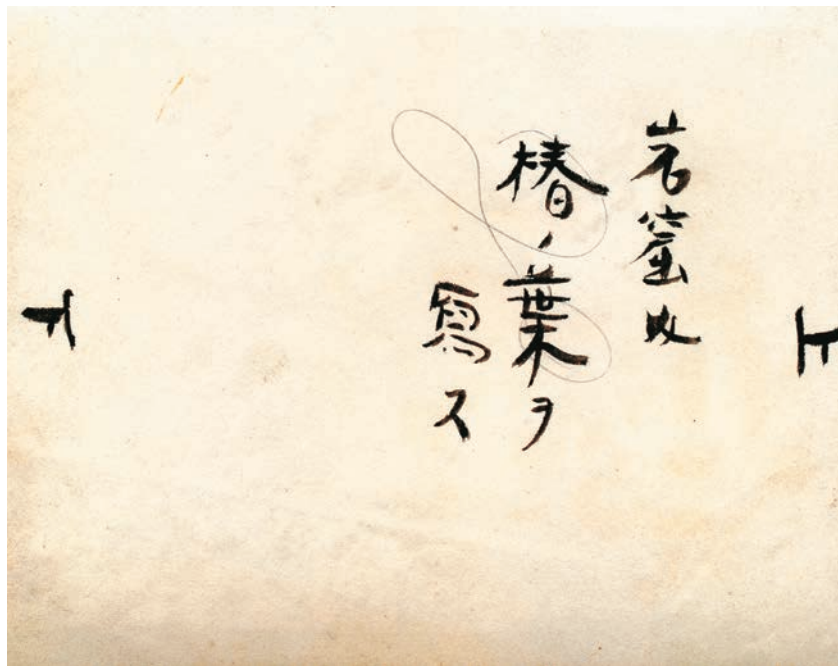 上
岩窟
椿ノ葉ヲ
寫ス
下